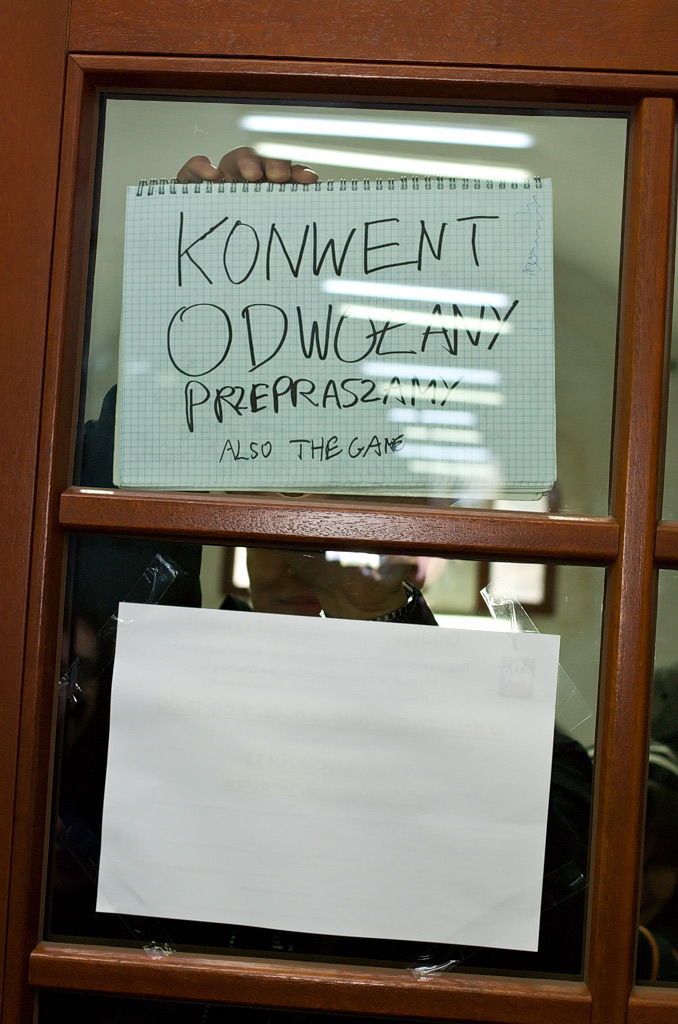 KONWENT
ODWOŁANY
PRZEPRASZAMY
ALSO THE GAME